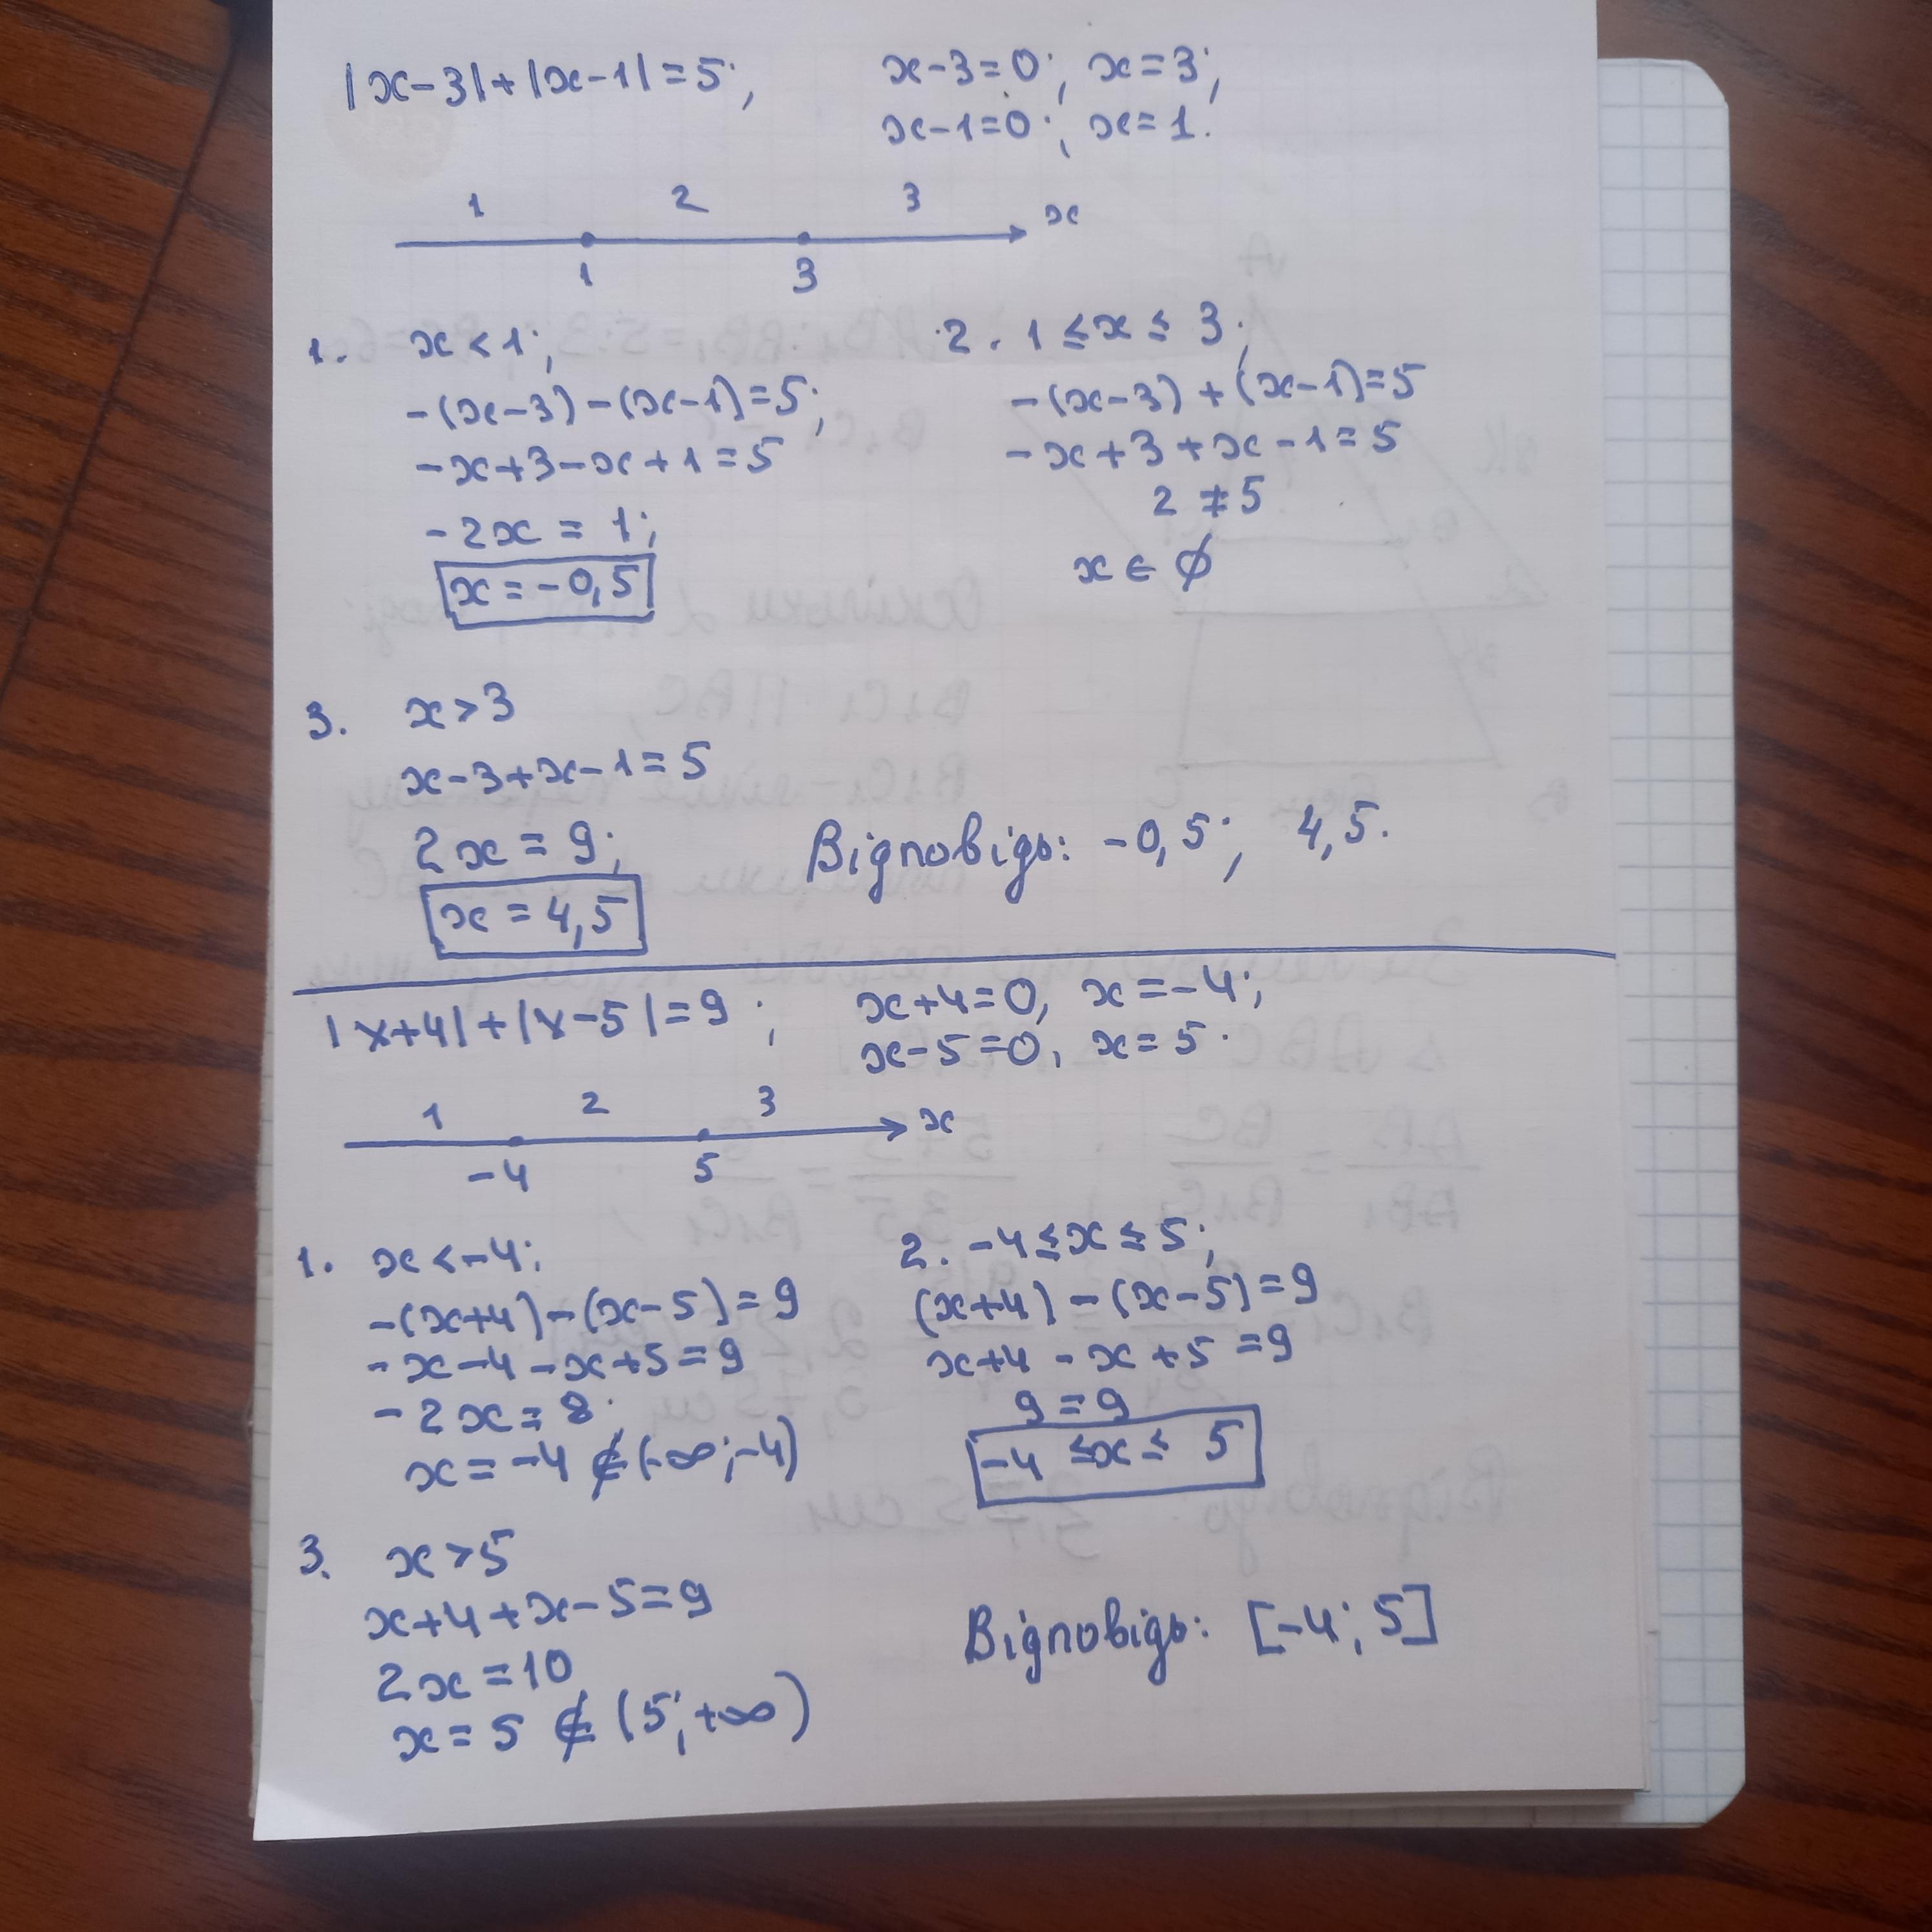 |x-3|+|x-1|=5;
x-3=0; x=3;
x-1=0; x=1.
1 2 3 x
1 3
1. x<1;
-(x-3)-(x-1)=5;
-x+3-x+1=5
-2x = 1;
x=-0,5
2. 1≤x≤3;
-(x-3)+(x-1)=5
-x+3+x-1=5
2≠5
x∈∅
3. x>3
x-3+x-1=5
2x=9;
x=4,5
Відповідь: -0,5; 4,5.
|x+4|+|x-5|=9;
x+4=0, x=-4;
x-5=0, x=5.
1 2 3 x
-4 5
1. x<-4;
-(x+4)-(x-5)=9
-x-4-x+5=9
-2x=8;
x=-4∉(-∞;-4)
2. -4≤x≤5;
(x+4)-(x-5)=9
x+4-x+5=9
9=9
-4≤x≤5
3. x>5
x+4+x-5=9
2x=10
x=5∉(5;+∞)
Відповідь: [-4; 5]